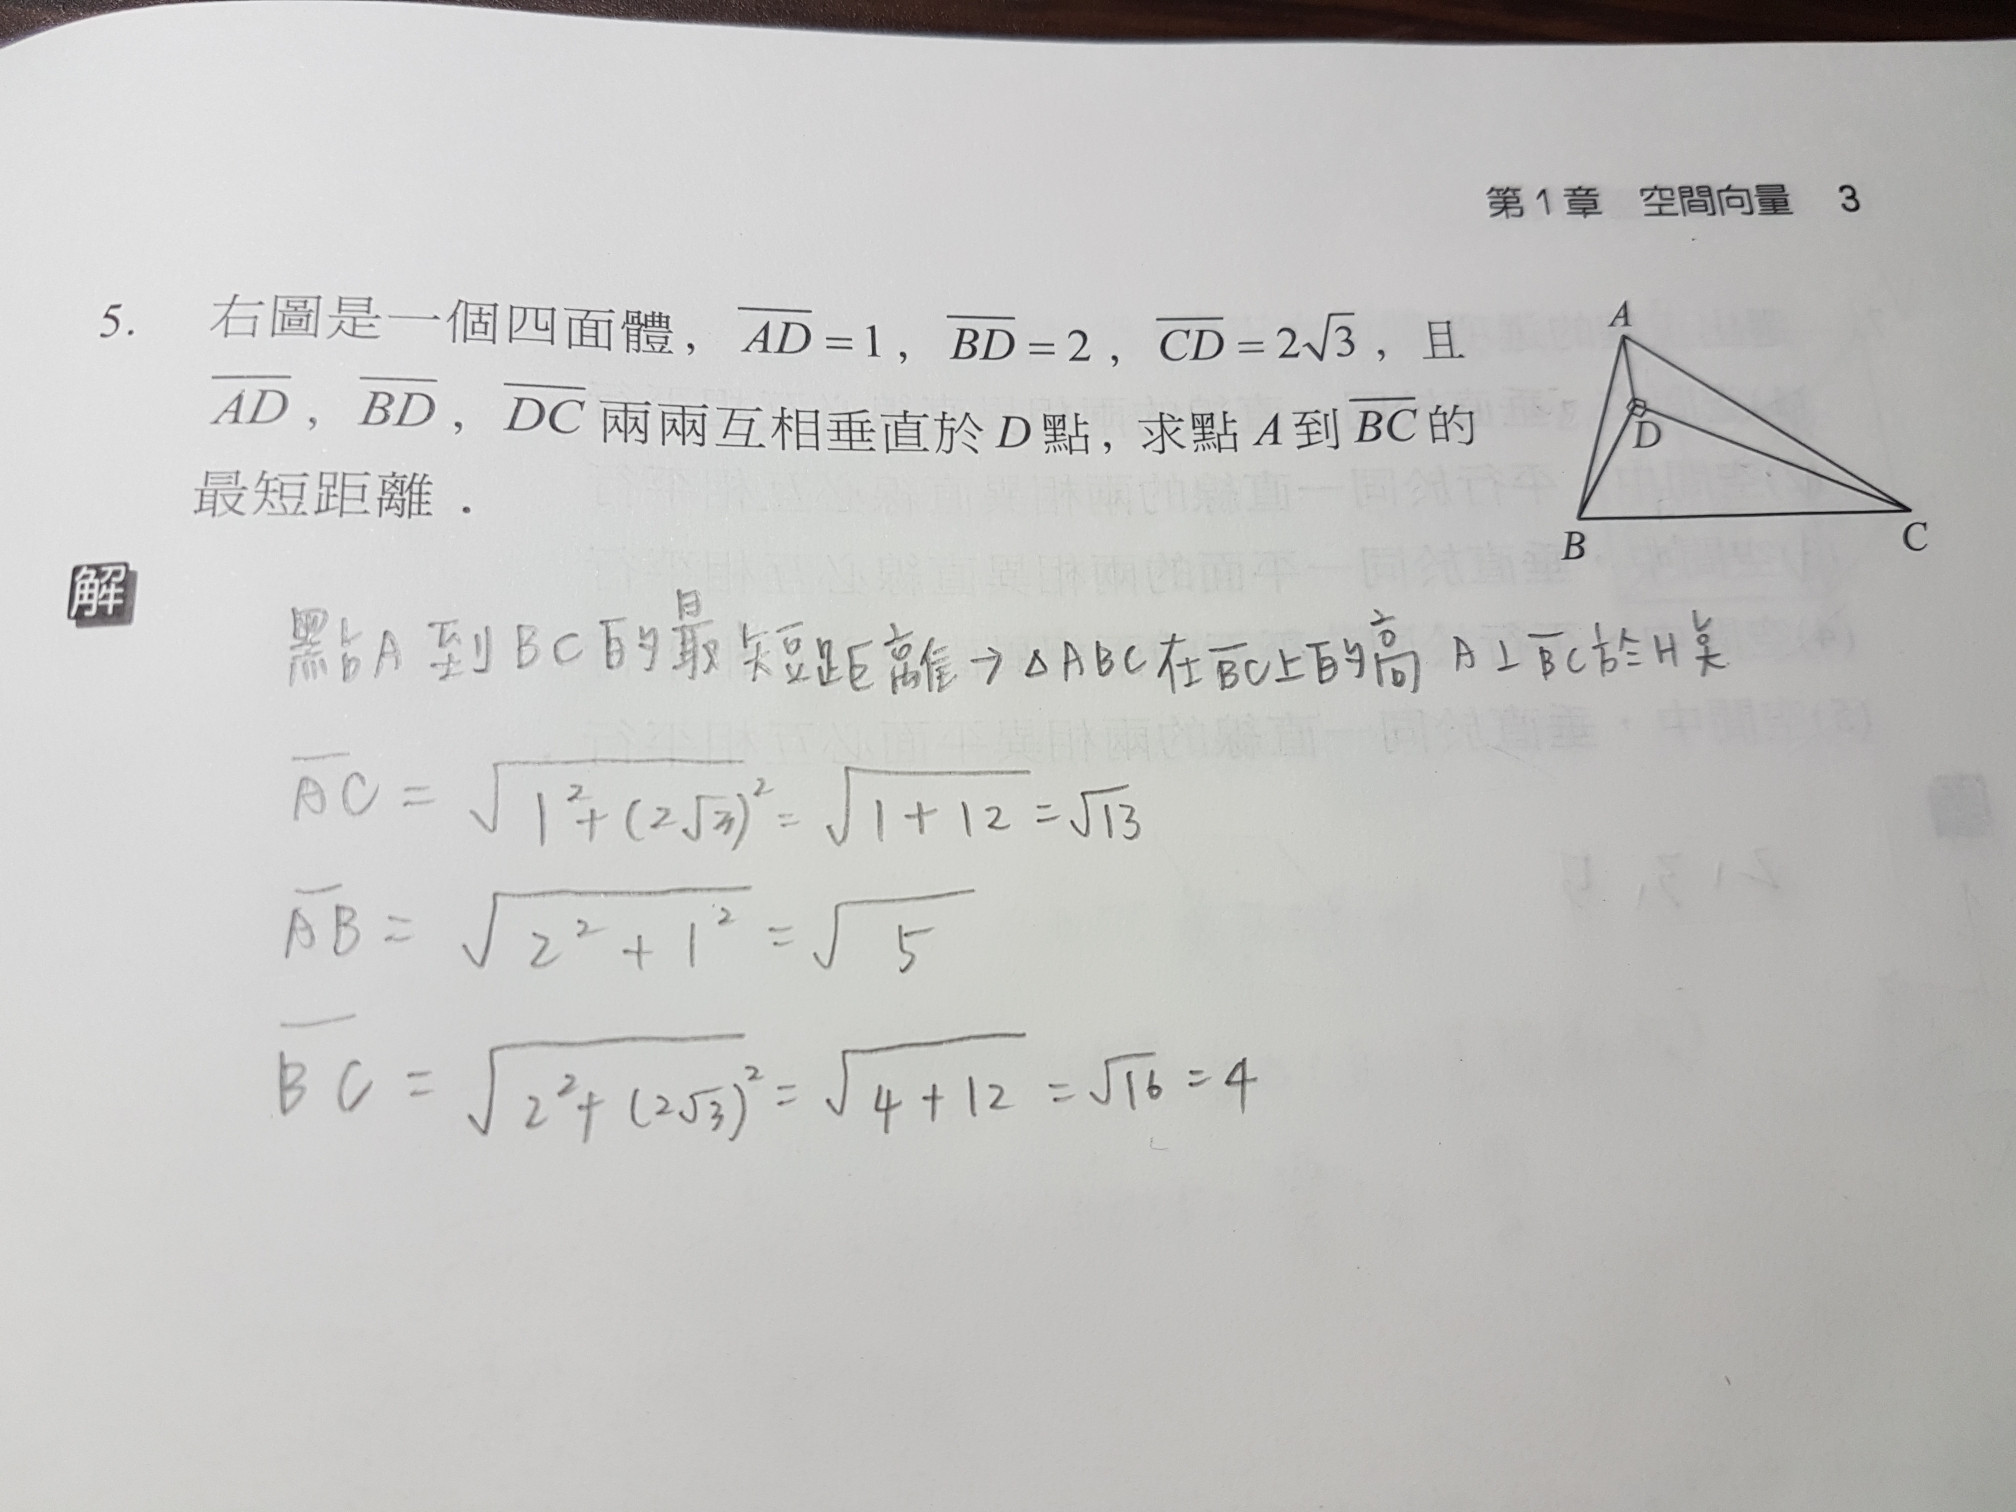 第1章 空間向量 3
5. 右圖是一個四面體，AD=1，BD=2，CD=2√3，且
AD，BD，DC兩兩互相垂直於D點，求點A到BC的
最短距離．
A
D
B
C
解
點A到BC的最短距離→△ABC在BC上的高 A⊥BC於H點
AC = √(1²+(2√3)²) = √(1+12) = √13
AB = √(2²+1²) = √5
BC = √(2²+(2√3)²) = √(4+12) = √16 = 4